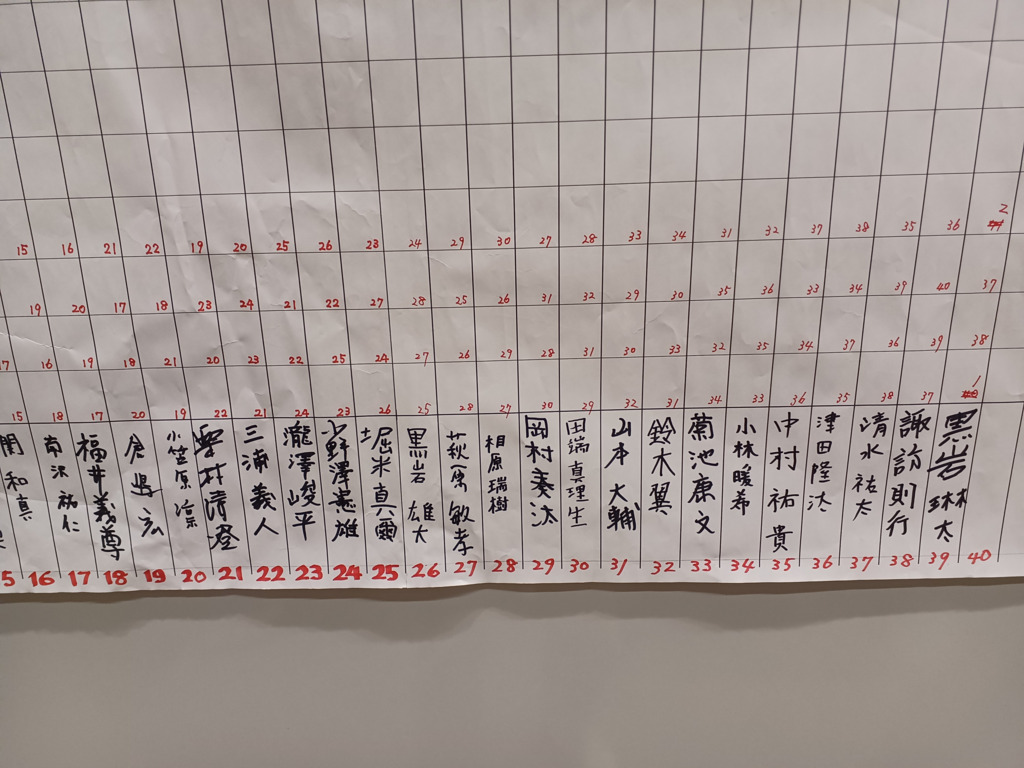 15 16 21 22 19 20 25 26 23 24 29 30 27 28 33 34 31 32 37 38 35 36 2
19 20 17 18 23 24 21 22 27 28 25 26 31 32 29 30 35 36 33 34 39 40 37
17 16 19 18 21 20 23 22 25 24 27 26 29 28 31 30 33 32 35 34 37 36 39 38
15 18 17 20 19 22 21 24 23 26 25 28 27 30 29 32 31 34 33 36 35 38 37 1
関和真
南沢祐仁
福井義尊
倉嶋宏
小笠原涼
三浦義人
瀧澤峻平
小野澤憲雄
堀米真爾
黒岩雄大
荻原敏孝
相原瑞樹
岡村奏汰
田端真理生
山本大輔
鈴木翼
菊池康文
小林暖希
中村祐貴
津田隆汰
清水祐太
諏訪則行
黒岩琳太
5 16 17 18 19 20 21 22 23 24 25 26 27 28 29 30 31 32 33 34 35 36 37 38 39 40